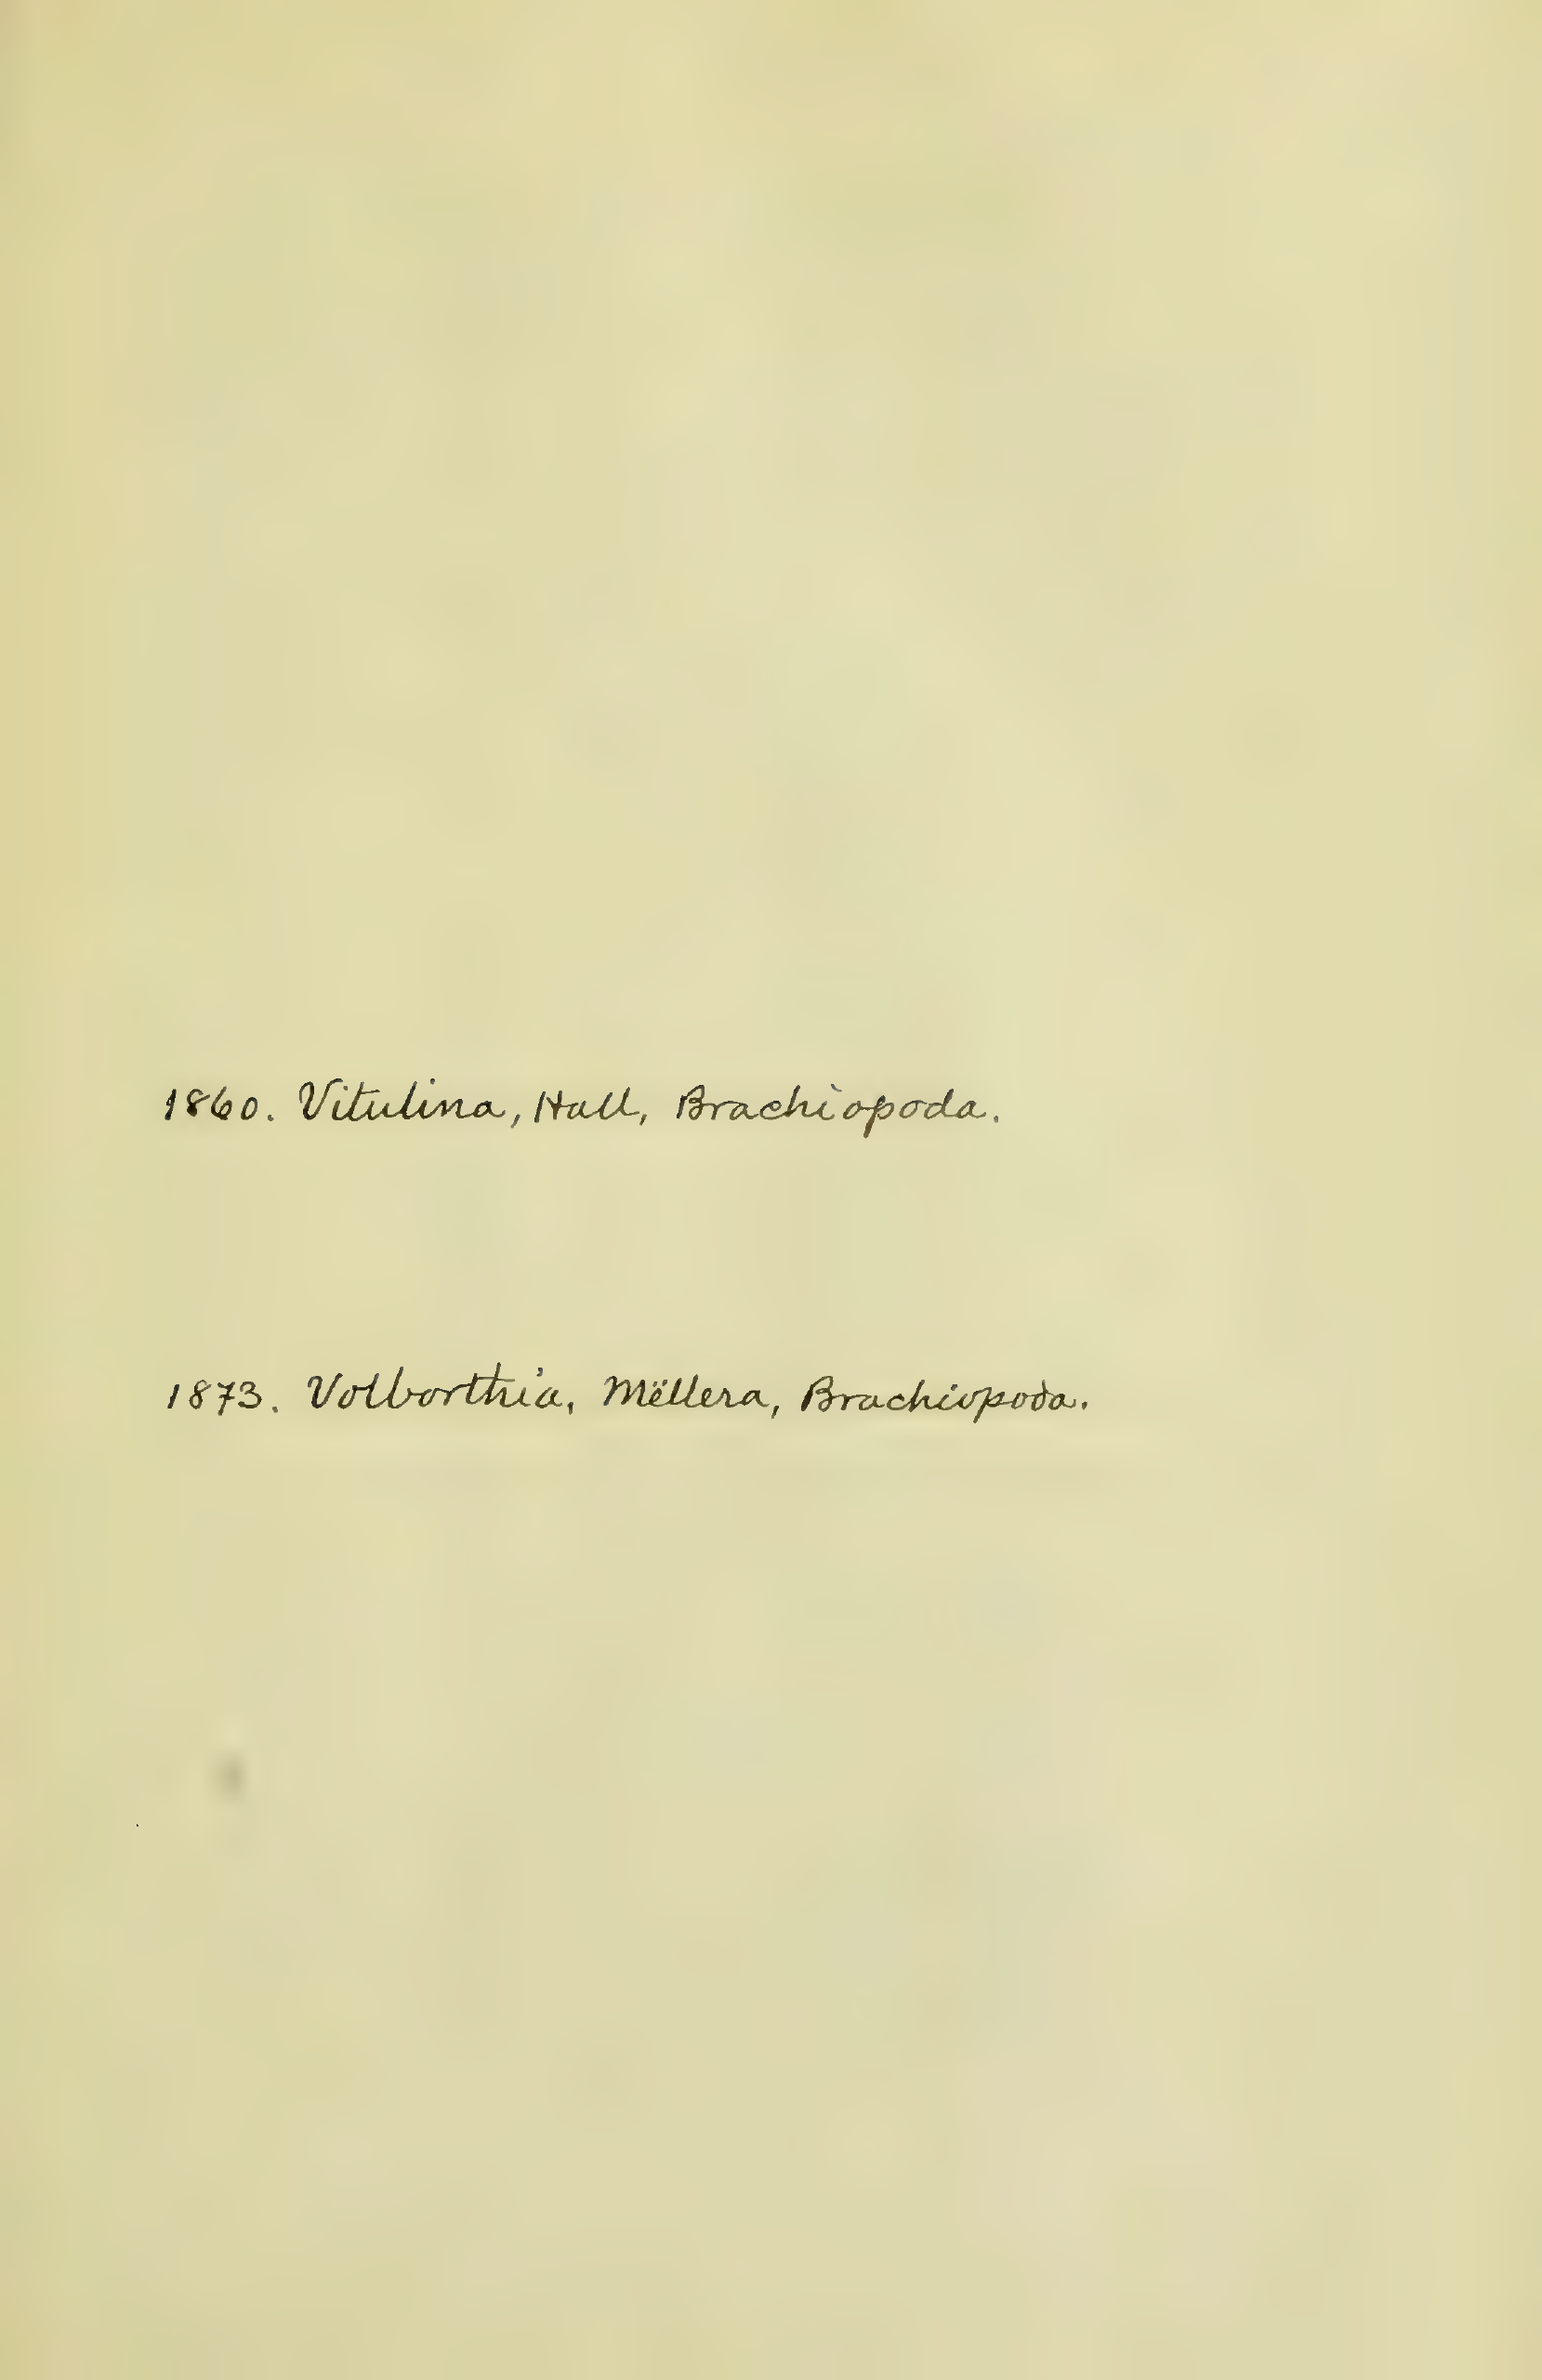 1860. Vitulina, Hall, Brachiopoda.
1873. Volborthia, Mëllera, Brachiopoda.